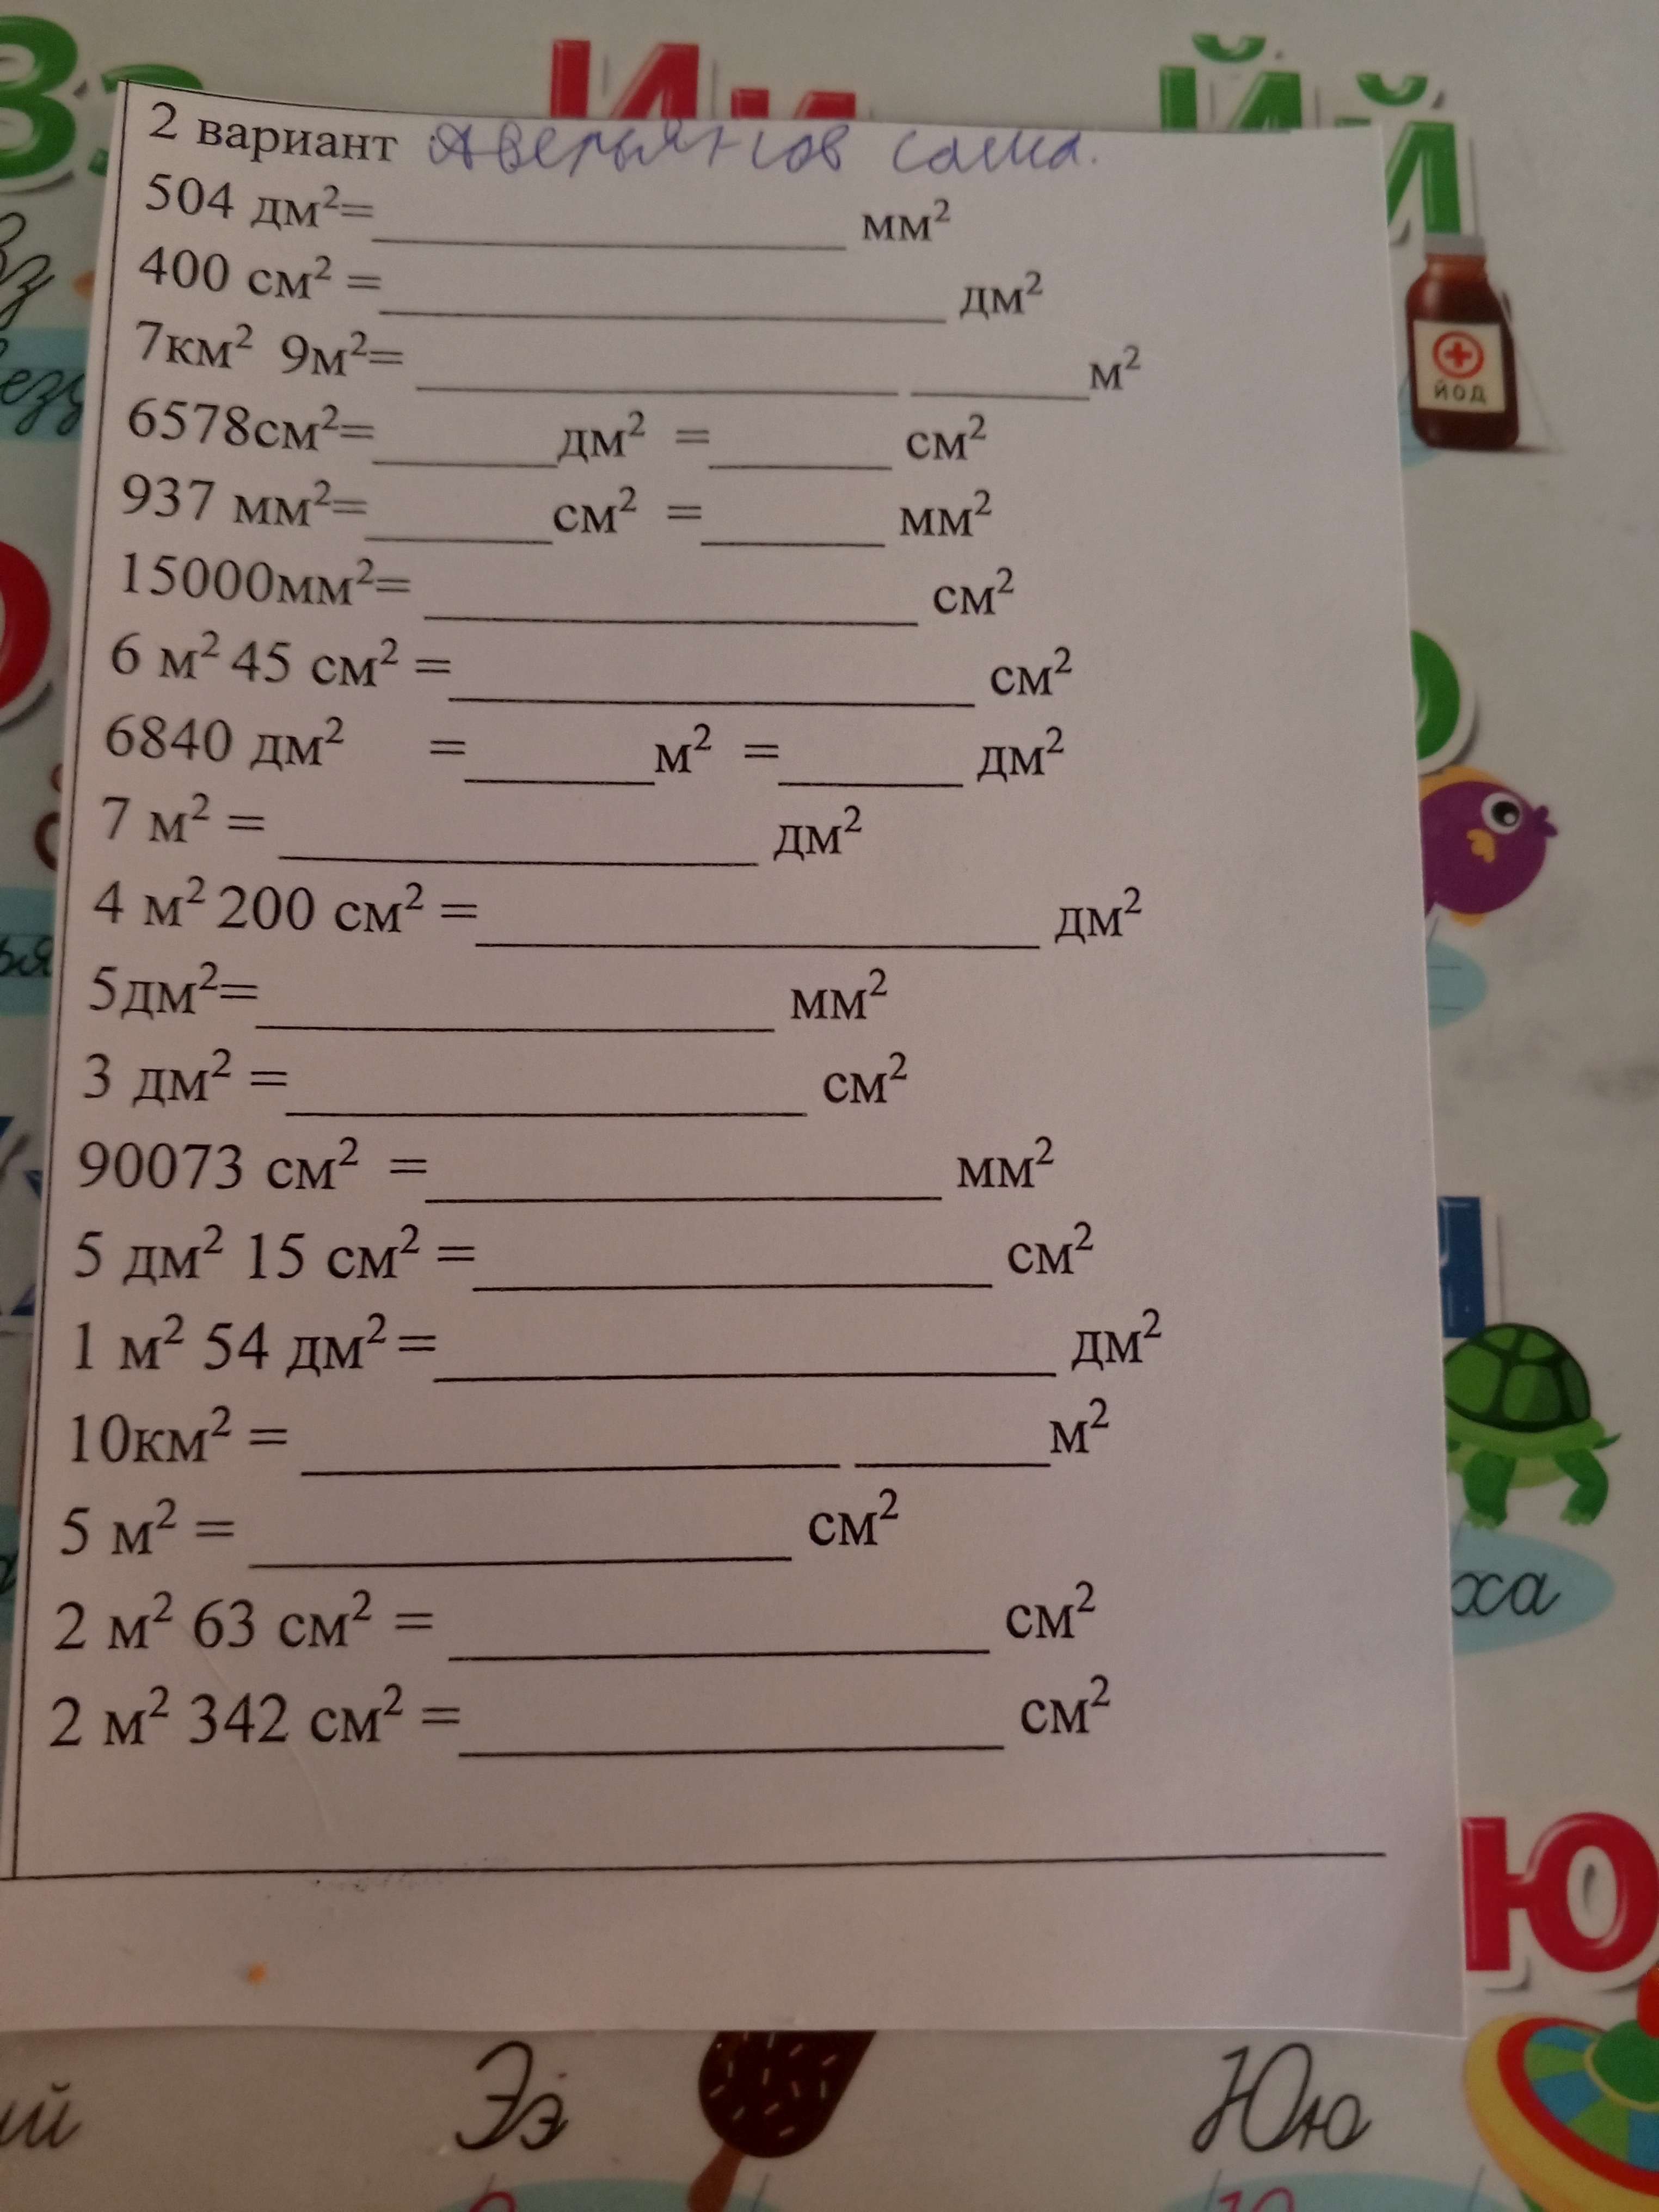 Зз Ии Йй
2 вариант Аверьянов Саша.
504 дм²=__________ мм²
400 см² =__________ дм²
7км² 9м²= __________ ____м²
6578см²=____дм² =____ см²
937 мм²=____см² =____ мм²
15000мм²= __________ см²
6 м² 45 см² =__________ см²
6840 дм² =____м² =____ дм²
7 м² = __________ дм²
4 м² 200 см² =__________ дм²
5дм²=__________ мм²
3 дм² =__________ см²
90073 см² =__________ мм²
5 дм² 15 см² =__________ см²
1 м² 54 дм² =__________ дм²
10км² = __________ ____м²
5 м² = __________ см²
2 м² 63 см² = __________ см²
2 м² 342 см² =__________ см²
йод
ха
Ю
ий Ээ Юю